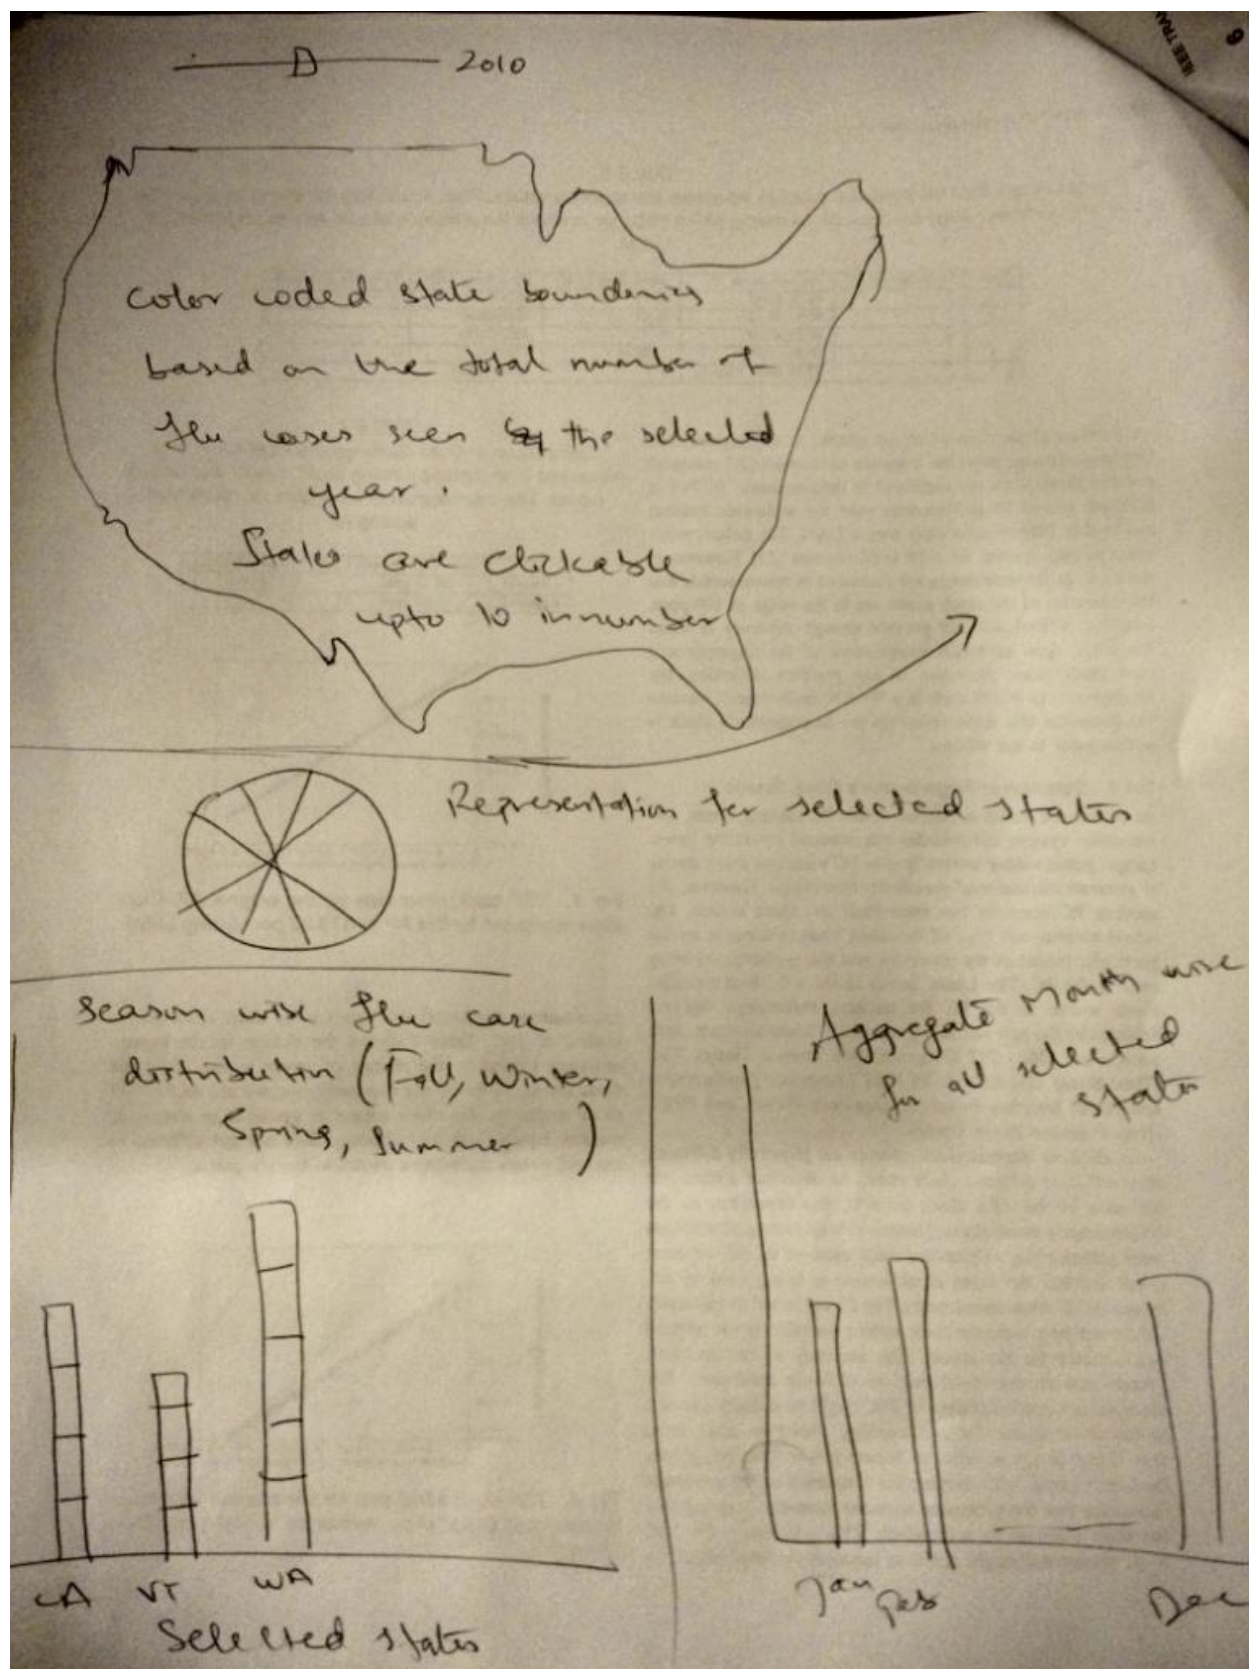 2010
IEEE TRAN
6
color coded state boundaries
based on the total number of
flu cases seen the selected
year.
States are clickable
upto 10 in number
Representation for selected states
Season wise flu case
distribution (Fall, Winter,
Spring, Summer)
CA VT WA
Selected states
Aggregate Month wise
for all selected
states
Jan Feb Dec